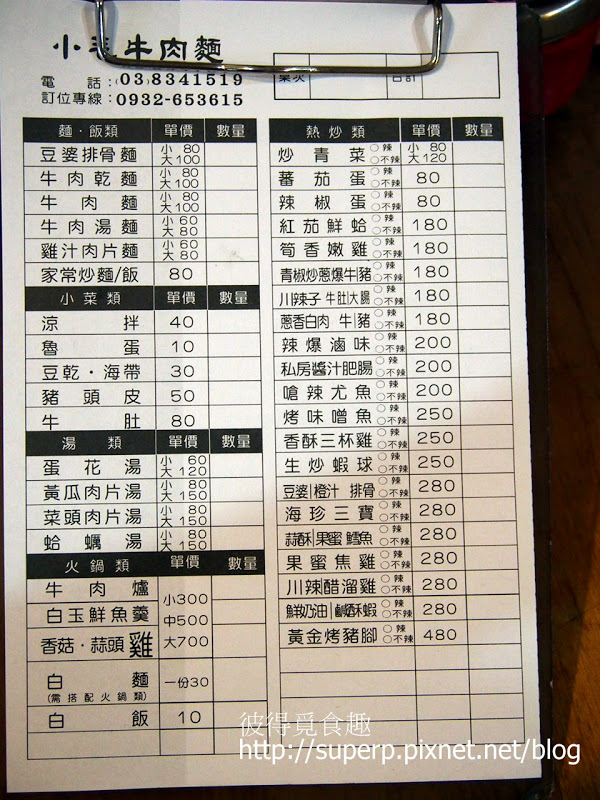 小 牛肉麵
電 話:(03)8341519
訂位專線:0932-653615
桌次 合計
麵・飯類 單價 數量
豆婆排骨麵 小 80 大100
牛肉乾麵 小 80 大100
牛肉麵 小 80 大100
牛肉湯麵 小 60 大 80
雞汁肉片麵 小 60 大 80
家常炒麵/飯 80
小菜類 單價 數量
涼拌 40
魯蛋 10
豆乾・海帶 30
豬頭皮 50
牛肚 80
湯類 單價 數量
蛋花湯 小 60 大120
黃瓜肉片湯 小 80 大150
菜頭肉片湯 小 80 大150
蛤蠣湯 小 80 大150
火鍋類 單價 數量
牛肉爐
白玉鮮魚羹
香菇・蒜頭雞
小300
中500
大700
白麵 一份30
(需搭配火鍋類)
白飯 10
熱炒類 單價 數量
炒青菜 ○辣 ○不辣 小 80 大120
蕃茄蛋 ○辣 ○不辣 80
辣椒蛋 ○辣 ○不辣 80
紅茄鮮蛤 ○辣 ○不辣 180
筍香嫩雞 ○辣 ○不辣 180
青椒炒蔥爆牛|豬 ○辣 ○不辣 180
川辣子 牛肚|大腸 ○辣 ○不辣 180
蔥香白肉 牛|豬 ○辣 ○不辣 180
辣爆滷味 ○辣 ○不辣 200
私房醬汁肥腸 ○辣 ○不辣 200
嗆辣尤魚 ○辣 ○不辣 200
烤味噌魚 ○辣 ○不辣 250
香酥三杯雞 ○辣 ○不辣 250
生炒蝦球 ○辣 ○不辣 250
豆婆|橙汁 排骨 ○辣 ○不辣 280
海珍三寶 ○辣 ○不辣 280
蒜酥|果蜜 鱈魚 ○辣 ○不辣 280
果蜜焦雞 ○辣 ○不辣 280
川辣醋溜雞 ○辣 ○不辣 280
鮮奶油|鹹酥蝦 ○辣 ○不辣 280
黃金烤豬腳 ○辣 ○不辣 480
彼得覓食趣
http://superp.pixnet.net/blog